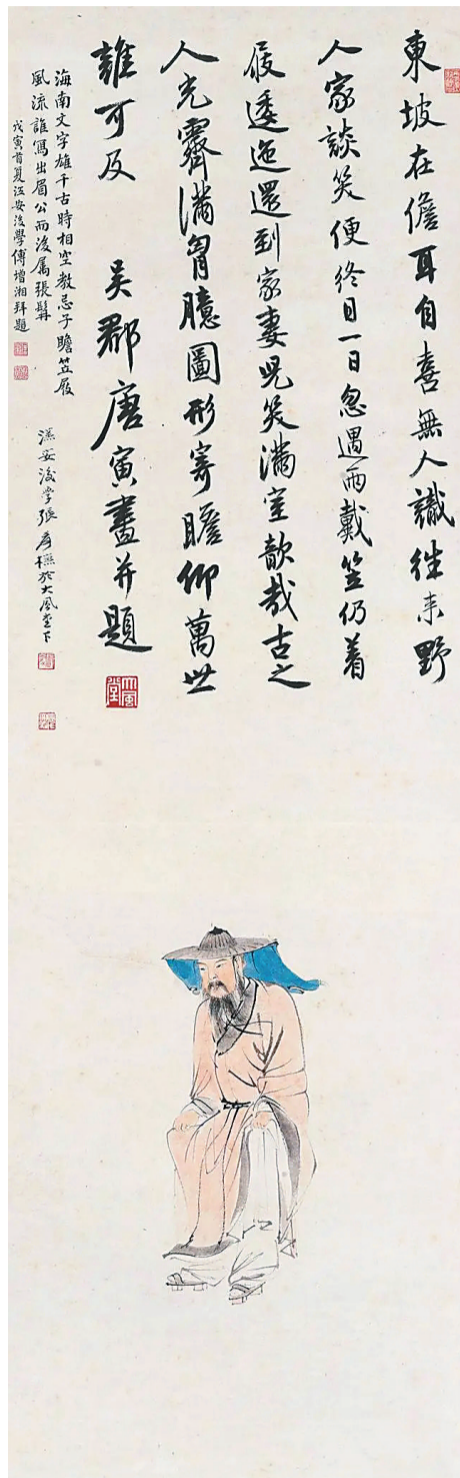 東坡在儋耳自喜無人識往来野
人家談笑便終日一日忽遇雨戴笠仍着
屐逶迤還到家妻兒笑滿室歆哉古之
人光霽滿胷臆圖形寄瞻仰萬世
誰可及 吴郡唐寅畫并題
大風堂
海南文字雄千古時相空教忌子瞻笠屐
風流誰寫出眉公而後属張髯
戊寅首夏江安後學傅增湘拜題
漢安後学張爰橅於大風堂下